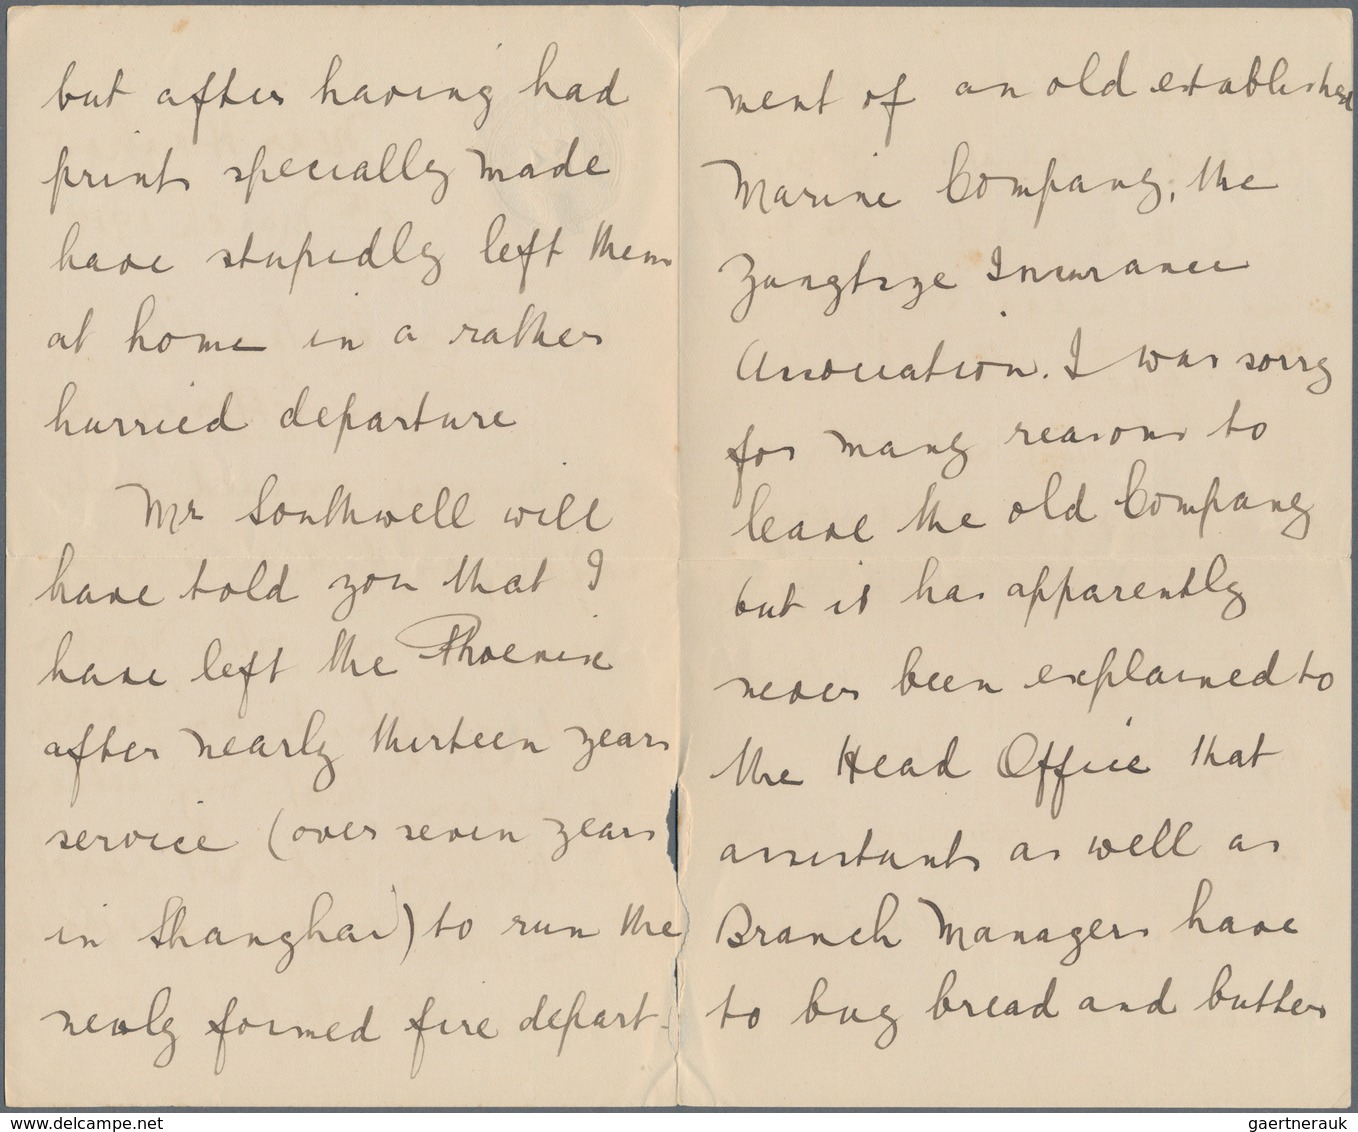 but after having had
prints specially made
have stupidly left them
at home in a rather
hurried departure
Mr Southwell will
have told you that I
have left the Phoenix
after nearly thirteen years
service (over seven years
in Shanghai) to run the
newly formed fire depart-
ment of an old established
Marine Company, the
Yangtsze Insurance
Association. I was sorry
for many reasons to
leave the old Company
but it has apparently
never been explained to
the Head Office that
assistants as well as
Branch Managers have
to buy bread and butter
www.delcampe.net
gaertnerauk